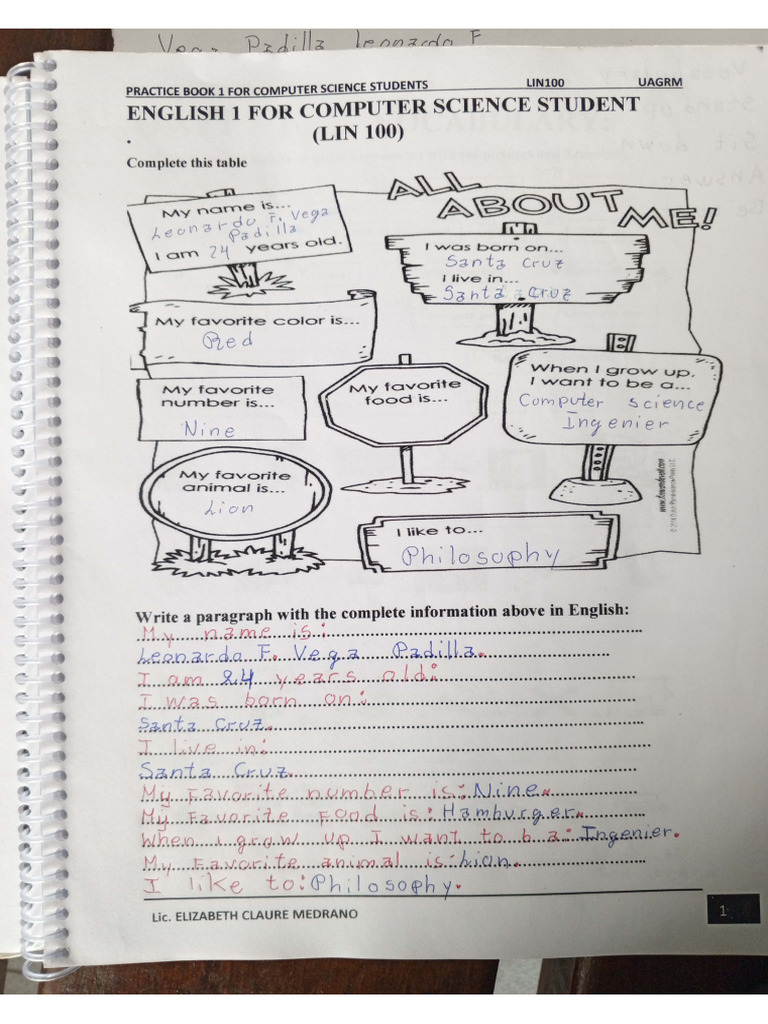 Vega Padilla Leonardo F
PRACTICE BOOK 1 FOR COMPUTER SCIENCE STUDENTS LIN100 UAGRM
ENGLISH 1 FOR COMPUTER SCIENCE STUDENT
(LIN 100)
.
Complete this table
ALL
ABOUT
ME!
My name is...
Leonardo F. Vega
Padilla
I am 24 years old.
I was born on...
Santa Cruz
I live in...
Santa Cruz
My favorite color is...
Red
My favorite
number is...
Nine
My favorite
food is...
When I grow up,
I want to be a...
Computer science
Ingenier
My favorite
animal is...
Lion
I like to...
Philosophy
Write a paragraph with the complete information above in English:
My name is:
Leonardo F. Vega Padilla.
I am 24 years old:
I was born on:
Santa Cruz.
I live in:
Santa Cruz.
My Favorite number is: Nine.
My Favorite Food is: Hamburger.
When I grow up I want to b a: Ingenier.
My Favorite animal is: Lion.
I like to: Philosophy.
Lic. ELIZABETH CLAURE MEDRANO
1